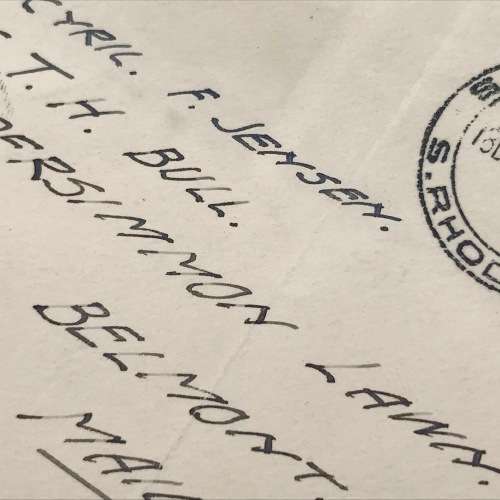 CYRIL. F. JENSEN.
T. H. BULL.
PERSIMMON LAWN.
BELMONT.
S. RHOD